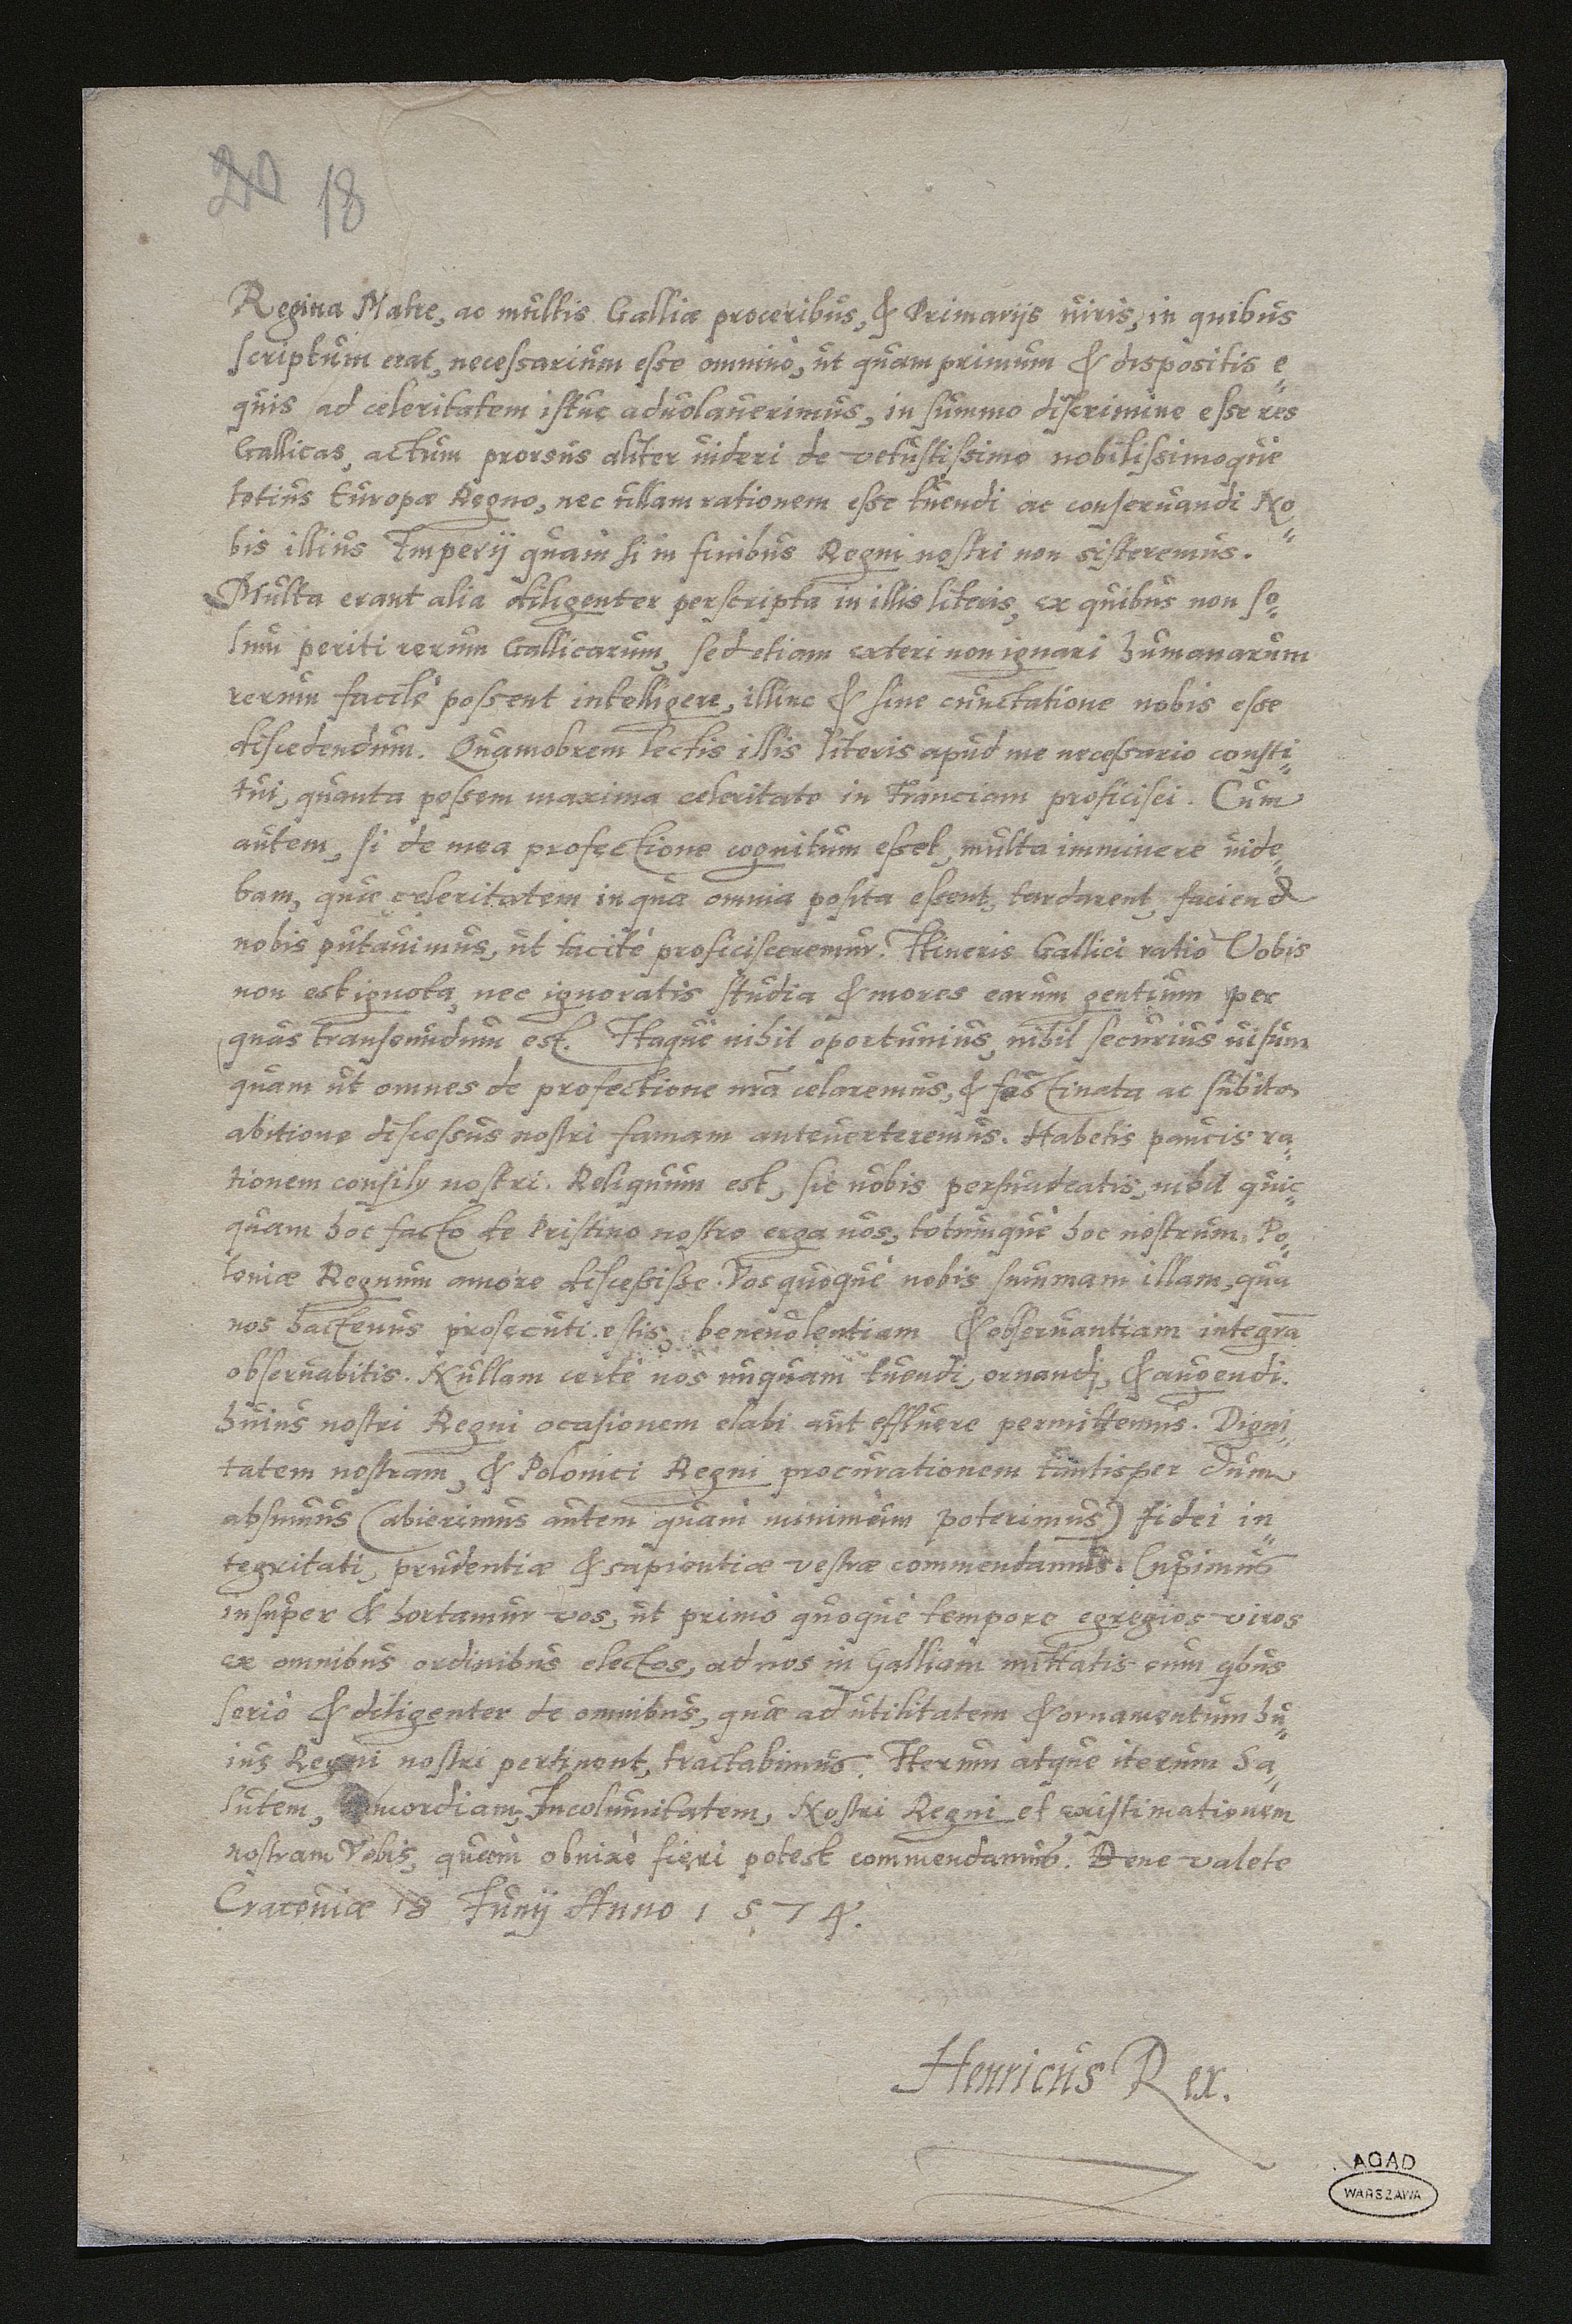 20 18
Regina Matre, ac multis Galliæ proceribus, & Primarijs uiris, in quibus
scriptum erat, necessarium esse omnino, ut quam primum & dispositis e„
quis ad celeritatem istuc aduolauerimus, in summo discrimine esse res
Gallicas, actum prorsus aliter uideri de vetustissimo nobilissimoque
totius Europæ Regno, nec ullam rationem esse tuendi ac conseruandi No„
bis illius Imperij quam si in finibus Regni nostri non sisteremus.
Multa erant alia diligenter perscripta in illis literis, ex quibus non so„
lum periti rerum Gallicarum, sed etiam exteri non ignari humanarum
rerum facile possent intelligere, illinc & sine cunctatione nobis esse
discedendum. Quamobrem lectis illis literis apud me necessario consti„
tui, quanta possem maxima celeritate in Franciam proficisci. Cum
autem, si de mea profectione cognitum esset, multa imminere uide„
bam, quæ celeritatem in qua omnia posita essent, tardarent, faciend
nobis putauimus, ut tacitè proficisceremur. Itineris Gallici ratio Vobis
non est ignota, nec ignoratis studia & mores earum gentium per
quas transeundum est. Itaque nihil oportunius, nihil securius uisum
quam ut omnes de profectione nrã celaremus, & festinata ac subita
abitione discessus nostri famam anteuerteremus. Habetis paucis ra„
tionem consilij nostri. Reliquum est, sic uobis persuadeatis, nihil quic„
quam hoc facto de Pristino nostro erga uos, totumque hoc nostrum Po„
loniæ Regnum amore discessisse. Vos quoque nobis summam illam, qua
nos hactenus prosecuti estis, beneuolentiam & obseruantiam integrã
obseruabitis. Nullam certè nos unquam tuendi, ornandi, & augendi
huius nostri Regni ocasionem elabi aut effluere permittemus. Digni„
tatem nostram, & Polonici Regni procurationem tantisper dum
absumus (abierimus autem quam minimum poterimus) fidei in„
tegritati, prudentiæ & sapientiæ vestræ commendamus. Cupimus
insuper & hortamur vos, ut primo quoque tempore egregios viros
ex omnibus ordinibus electos, ad nos in Galliam mittatis cum qbus
serio & diligenter de omnibus, quæ ad utilitatem & ornamentum hu„
ius Regni nostri pertinent, tractabimus. Iterum atque iterum Sa„
lutem, Concordiam, Incolumitatem, Nostri Regni et existimationem
nostram Vobis, quam obnixè fieri potest commendamus. Bene valete
Cracouiæ 18 Junij Anno 1574.
Henricus Rex.
AGAD
WARSZAWA